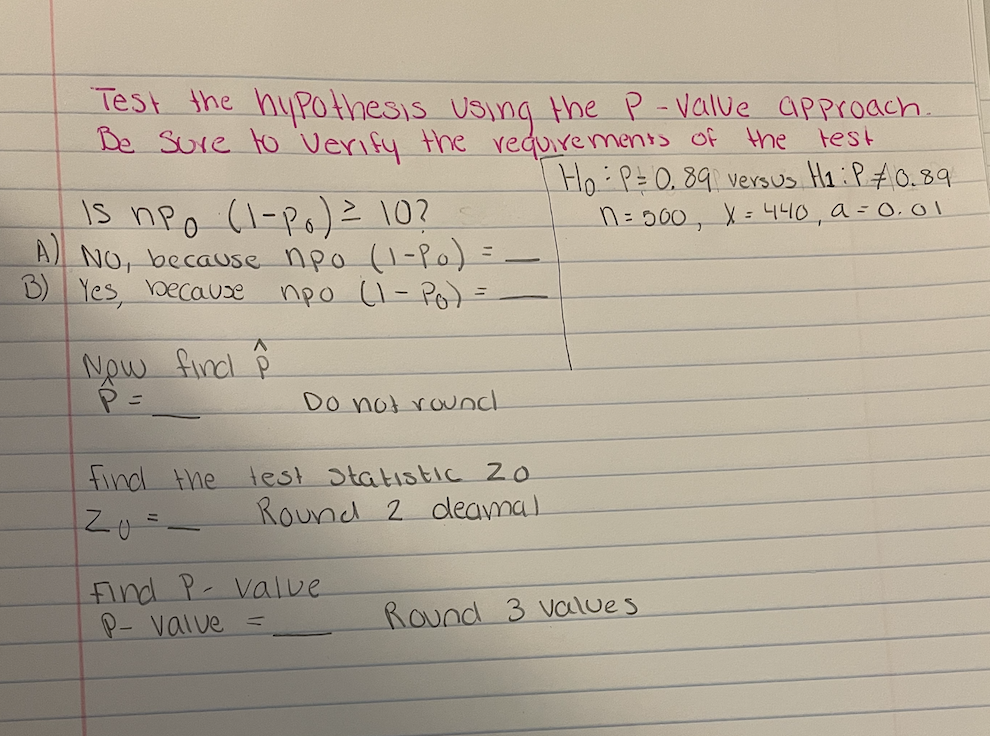 Test the hypothesis using the P-value approach.
Be Sure to Verify the requirements of the test
H₀: P = 0.89 versus H₁: P ≠ 0.89
n = 500, X = 440, a = 0.01
Is np₀ (1-p₀) ≥ 10?
A) NO, because npo (1-P₀) = __
B) Yes, because npo (1-P₀) = __
Now find p̂
P̂ = __ Do not round
find the test statistic Zo
Z₀ = __ Round 2 decimal
Find P-value
P-value = __ Round 3 values